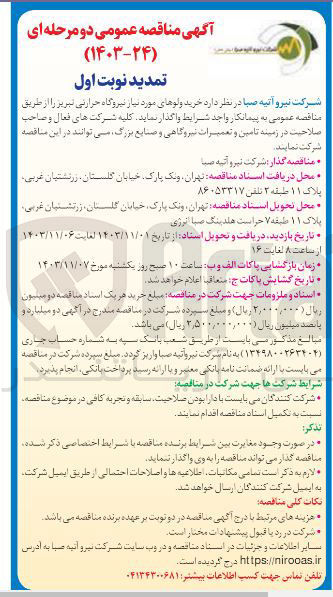 آگهی مناقصه عمومی دو مرحله‌ای
(۱۴۰۳-۲۴)
تمدید نوبت اول
شرکت نیرو آتیه صبا در نظر دارد خرید ولوهای مورد نیاز نیروگاه حرارتی تبریز را از طریق
مناقصه عمومی به پیمانکار واجد شرایط واگذار نماید. کلیه شرکت های فعال و صاحب
صلاحیت در زمینه تامین و تعمیرات نیروگاهی و صنایع بزرگ، می توانند در این مناقصه
شرکت نمایند.
• مناقصه گذار: شرکت نیرو آتیه صبا
• محل دریافت اسناد مناقصه: تهران، ونک پارک، خیابان گلستان، زرتشتیان غربی،
پلاک ۱۱ طبقه ۲ تلفن ۸۶۰۵۳۳۱۷
• محل تحویل اسناد مناقصه: تهران، ونک پارک، خیابان گلستان، زرتشتیان غربی،
پلاک ۱۱ طبقه ۷ حراست هلدینگ صبا انرژی
• تاریخ بازدید، دریافت و تحویل اسناد: از تاریخ ۱۴۰۳/۱۱/۰۱ لغایت ۱۴۰۳/۱۱/۰۶
از ساعت ۸ لغایت ۱۶
• زمان بازگشایی پاکات الف و ب: ساعت ۱۰ صبح روز یکشنبه مورخ ۱۴۰۳/۱۱/۰۷
• تاریخ گشایش پاکات ج: متعاقبا اعلام خواهد شد.
• اسناد و ملزومات جهت شرکت در مناقصه: مبلغ خرید هر یک اسناد مناقصه دو میلیون
ریال (۲,۰۰۰,۰۰۰ ریال) و مبلغ سپرده شرکت در مناقصه مندرج در آگهی دو میلیارد و
پانصد میلیون ریال (۲,۵۰۰,۰۰۰,۰۰۰ ریال) می باشد.
مبالغ مذکور می بایست از طریق شعب بانک سپه به شماره حساب جاری
(۱۳۴۹۸۰۰۲۶۳۴۰۴) به نام شرکت نیرو آتیه صبا واریز گردد. مبلغ سپرده شرکت در مناقصه
می بایست با ارائه ضمانت نامه بانکی معتبر و یا ارائه رسید پرداخت بانکی، انجام پذیرد.
شرایط شرکت ها جهت شرکت در مناقصه:
• شرکت کنندگان می بایست با دارا بودن صلاحیت، سابقه و تجربه کافی در موضوع مناقصه،
نسبت به تکمیل اسناد مناقصه اقدام نمایند.
تذکر:
• در صورت وجود مغایرت بین شرایط برنده مناقصه با شرایط اختصاصی ذکر شده،
مناقصه گذار می تواند مناقصه را به وی واگذار ننماید.
• لازم به ذکر است تمامی مکاتبات، اطلاعیه ها و اصلاحات احتمالی از طریق ایمیل شرکت،
به ایمیل شرکت کنندگان ارسال خواهد شد.
نکات کلی مناقصه:
• هزینه های مرتبط با درج آگهی مناقصه در دو نوبت بر عهده برنده مناقصه می باشد.
• شرکت در رد یا قبول پیشنهادات مختار است.
سایر اطلاعات و جزئیات در اسناد مناقصه و در وب سایت شرکت نیرو آتیه صبا به آدرس
https://nirooas.ir درج گردیده است.
تلفن تماس جهت کسب اطلاعات بیشتر: ۰۴۱۳۴۳۰۰۶۸۱